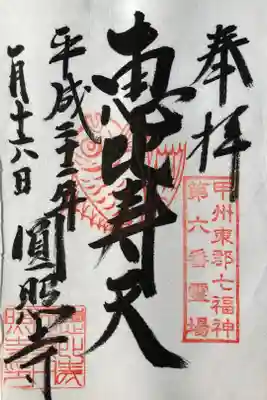 奉拝
甲州東郡七福神
第六番霊場
恵比寿天
平成二十二年
一月十六日
圓照寺